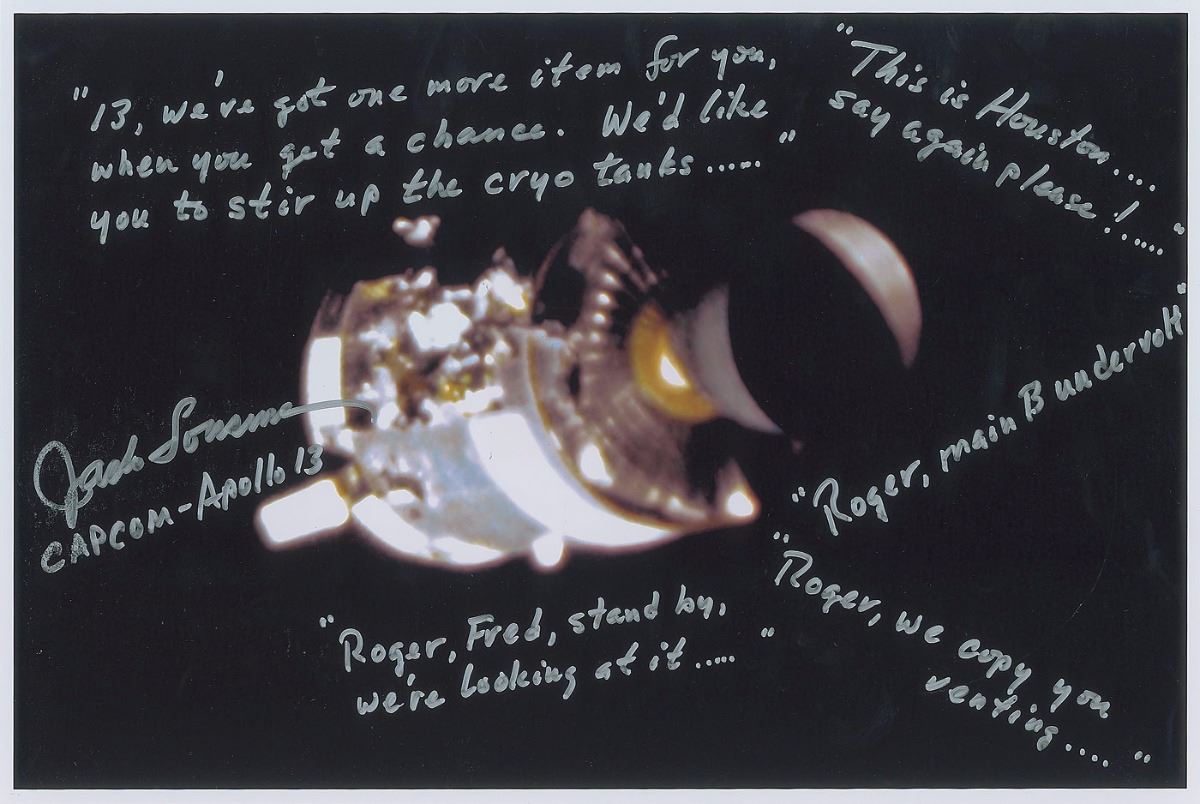 "13, we've got one more item for you,
when you get a chance. We'd like
you to stir up the cryo tanks ...... "
"This is Houston....
say again please!..... "
"Roger, main B undervolt"
"Roger, we copy you
venting..... "
"Roger, Fred, stand by,
we're looking at it ..... "
Jack Lousma
CAPCOM-Apollo 13